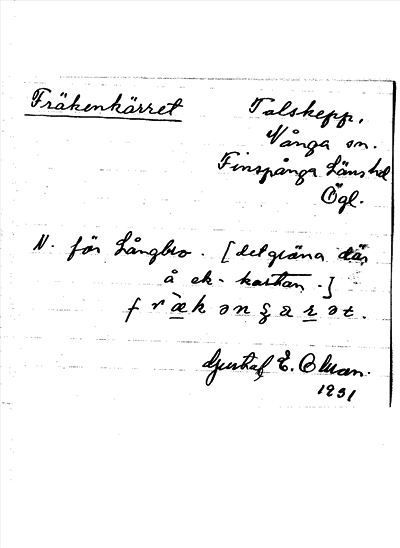 Fräkenkärret
Talskepp,
Vånga sn.
Finspånga Läns hd
Ögl.
N. för Långbro. [det gröna där
å ek. kartan.]
Gustaf E. Olson.
1931